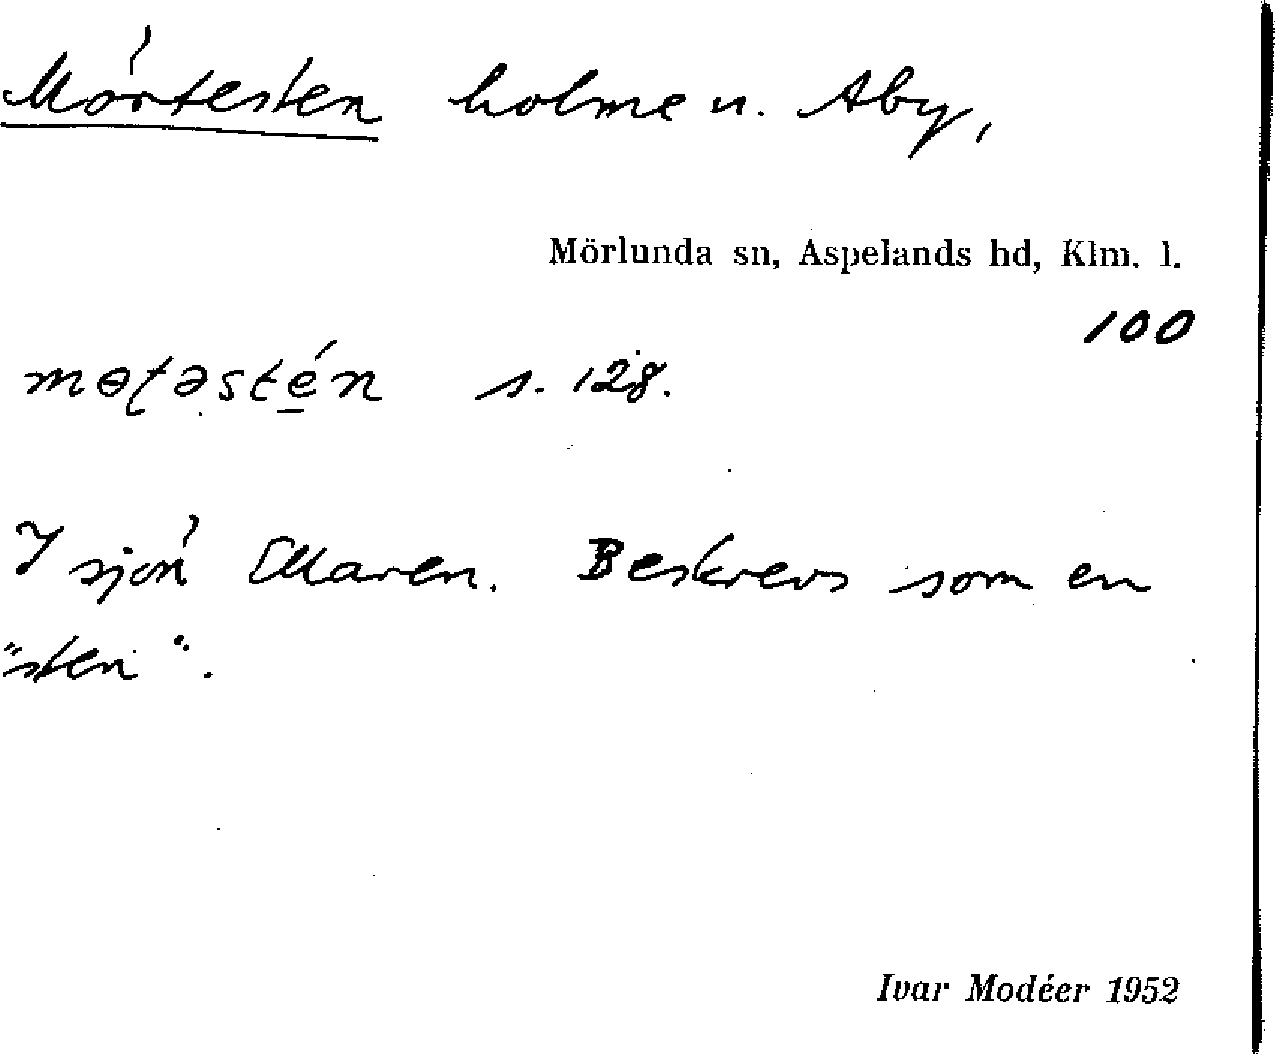 Mörtesten holme u. Åby,
Mörlunda sn, Aspelands hd, Klm. l.
100
møʈəstén s. 128.
I sjön Maren. Beskrevs som en
"sten".
Ivar Modéer 1952